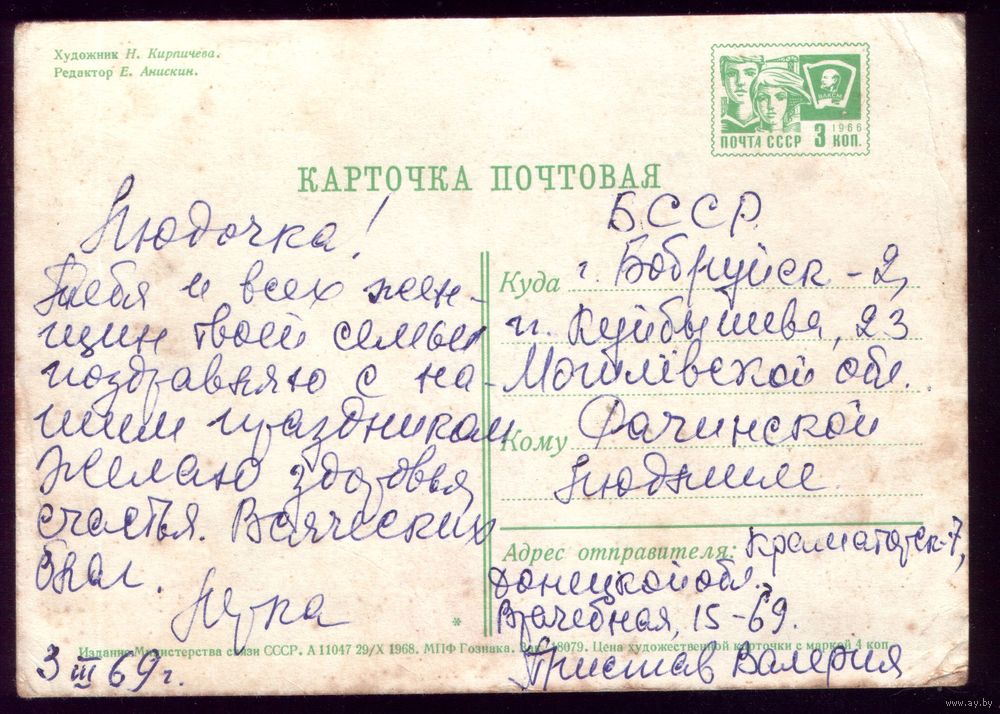 Художник Н. Кирпичева.
Редактор Е. Анискин.
ВЛКСМ
1966
ПОЧТА СССР 3 КОП.
КАРТОЧКА ПОЧТОВАЯ
Людочка!
Тебя и всех жен-
щин твоей семьи
поздравляю с на-
шим праздником
Желаю здоровья
счастья. Всяческих
благ.
3 III 69 г.
БССР
Куда г. Бобруйск - 2,
Куйбышева, 23
Могилёвской обл.
Кому
Людмиле
Адрес отправителя: Краматорск-7,
Донецкой обл.
Врачебная, 15-69.
Пристав Валерия
*
Издание Министерства связи СССР. А 11047 29/X 1968. МПФ Гознака. Зак. 18079. Цена художественной карточки с маркой 4 коп.
www.ay.by